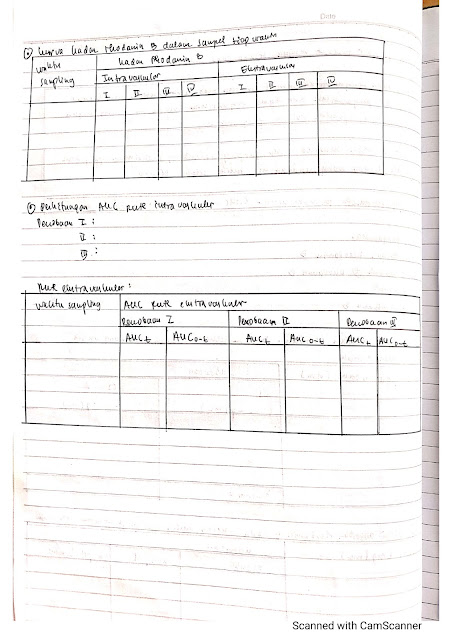 Date
Kurva kadar Rhodamin B dalam sampel tiap waktu
waktu sampling
kadar Rhodamin B
Intravaskular
Ekstravaskular
I II III IV I II III IV
Perhitungan AUC rute intravaskuler
Percobaan I :
II :
III :
Rute ekstravaskuler :
waktu sampling
AUC rute ekstravaskuler
Percobaan I
Percobaan II
Percobaan III
AUCt AUC0-t AUCt AUC0-t AUCt AUC0-t
Scanned with CamScanner